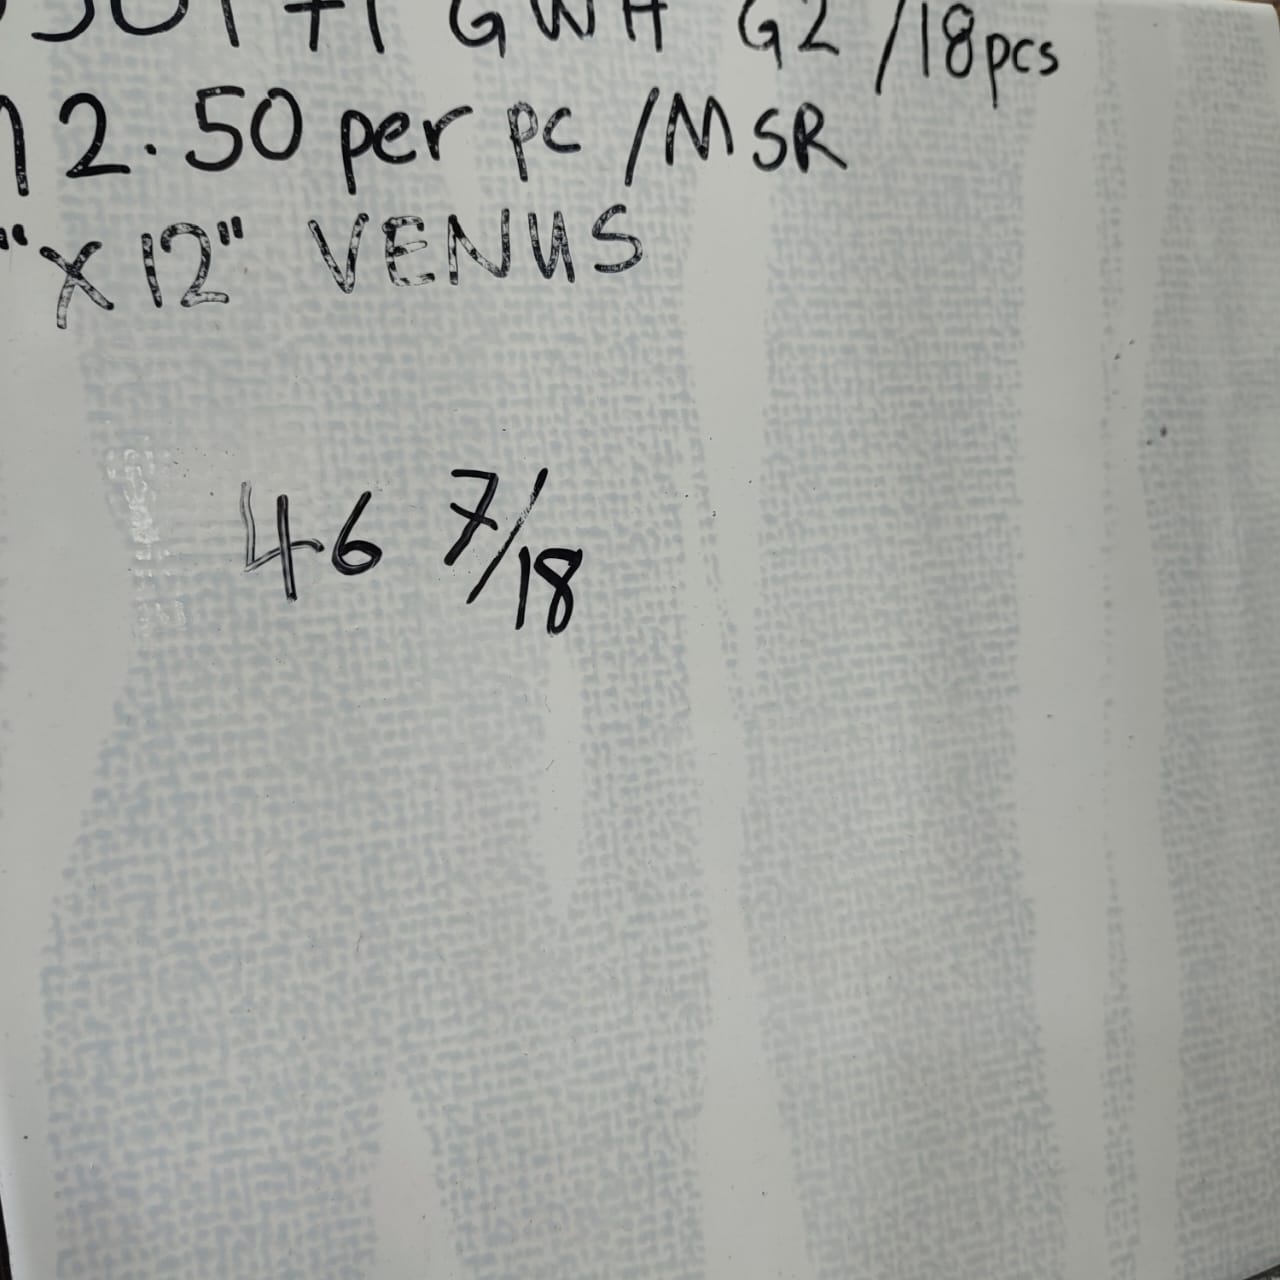 GWH G2 /18pcs
2.50 per pc /MSR
"X 12" VENUS
46 7/18